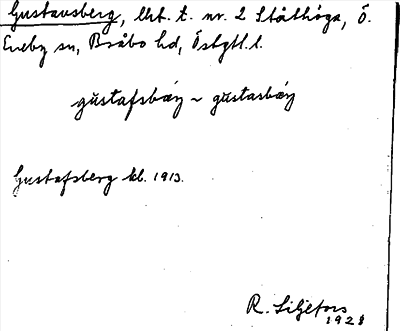 Gustavsberg, lht. t. nr. 2 Stålhöga, Ö.
Eneby sn, Bråbo hd, Östgtl. l.
gustafsbæry ~ gustasbæry
Gustafsberg kl. 1913.
R. Liljefors
1928